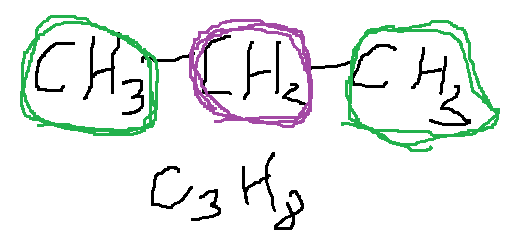 CH₃—CH₂—CH₃
C₃H₈